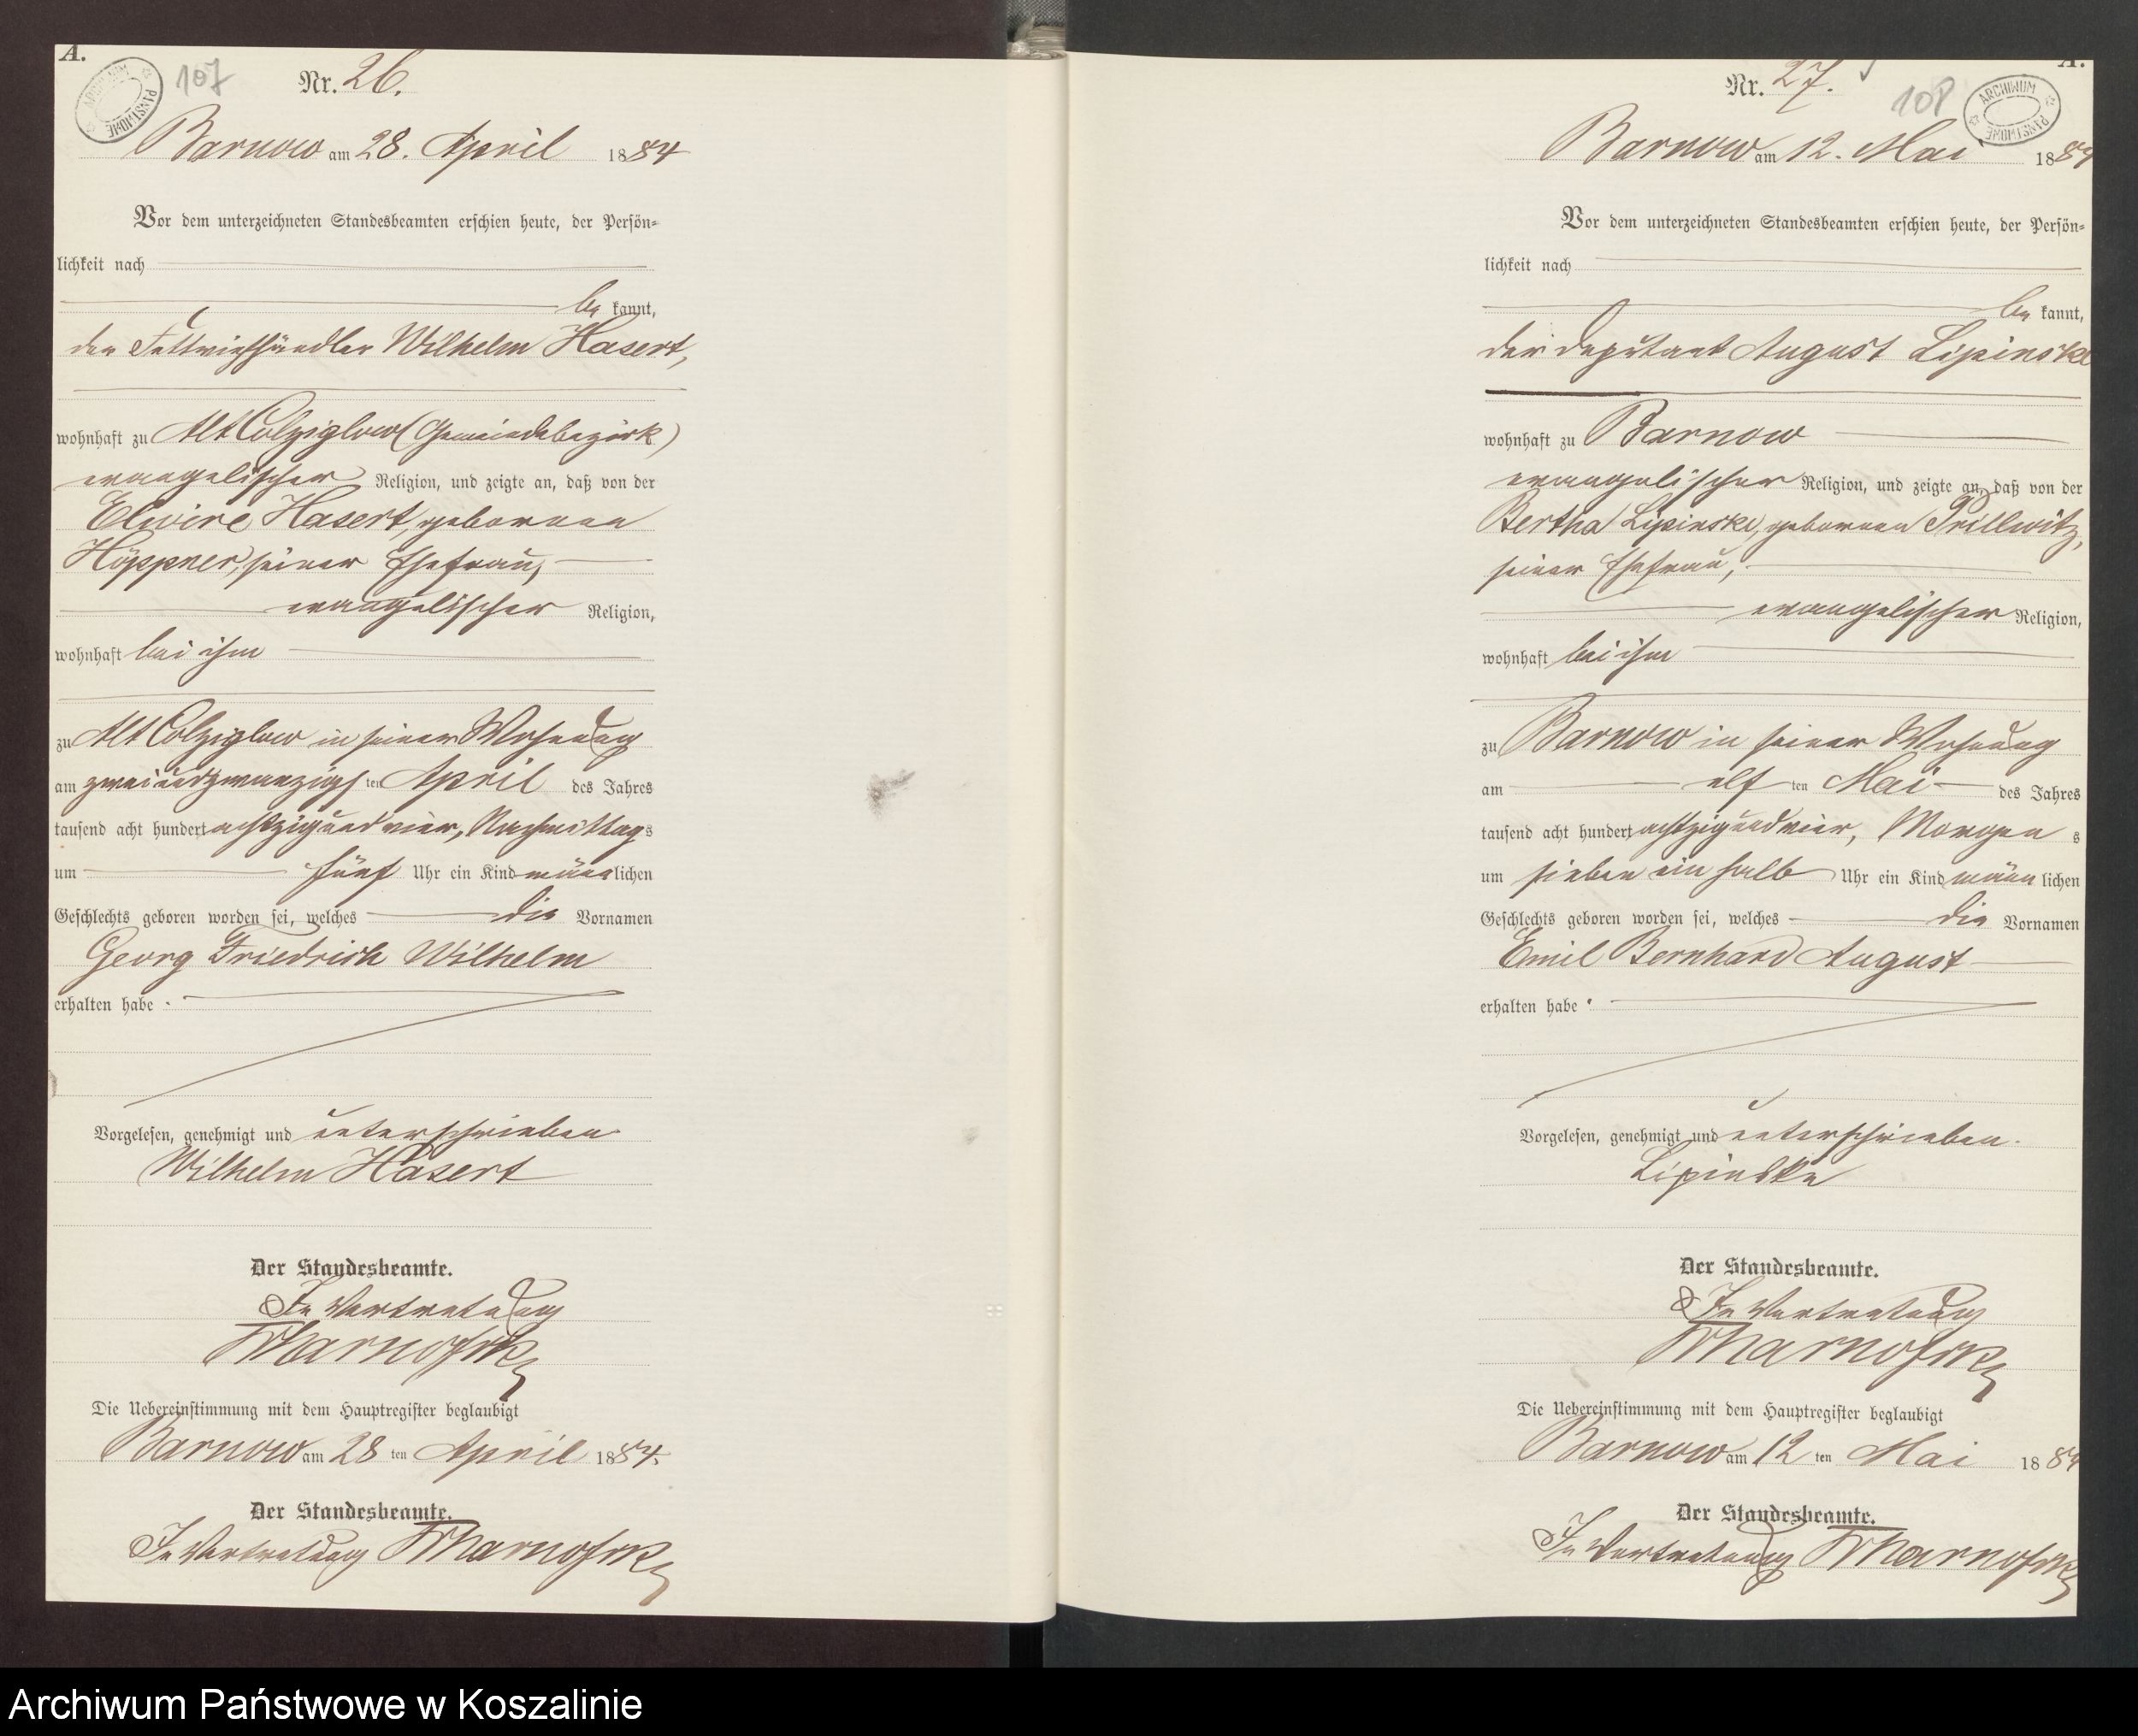 A.
ARCHIWUM PAŃSTWOWE
107
Nr. 26.
Barnow am 28. April 1884
Vor dem unterzeichneten Standesbeamten erschien heute, der Persön-
lichkeit nach
be kannt,
der Fettviehhändler Wilhelm Hasert,
wohnhaft zu Alt Colziglow (Gemeindebezirk)
evangelischer Religion, und zeigte an, daß von der
Elwire Hasert, geborenen
Höppner, seiner Ehefrau,
evangelischer Religion,
wohnhaft bei ihm
zu Alt Colziglow in seiner Wohnung
am zweiundzwanzigsten April des Jahres
tausend acht hundert achtzig und vier, Nachmittags
um fünf Uhr ein Kind männlichen
Geschlechts geboren worden sei, welches die Vornamen
Georg Friedrich Wilhelm
erhalten habe.
Vorgelesen, genehmigt und unterschrieben
Wilhelm Hasert
Der Standesbeamte.
In Vertretung
Die Uebereinstimmung mit dem Hauptregister beglaubigt
Barnow am 28 ten April 1884.
Der Standesbeamte.
In Vertretung
A.
ARCHIWUM PAŃSTWOWE
108
Nr. 27.
Barnow am 12. Mai 1884
Vor dem unterzeichneten Standesbeamten erschien heute, der Persön-
lichkeit nach
be kannt,
der Deputant August Lipinske
wohnhaft zu Barnow
evangelischer Religion, und zeigte an, daß von der
Bertha Lipinske, geborenen Prillwitz,
seiner Ehefrau,
evangelischer Religion,
wohnhaft bei ihm
zu Barnow in seiner Wohnung
am elf ten Mai des Jahres
tausend acht hundert achtzig und vier, Morgens
um sieben ein halb Uhr ein Kind männlichen
Geschlechts geboren worden sei, welches die Vornamen
Emil Bernhard August
erhalten habe.
Vorgelesen, genehmigt und unterschrieben.
Lipinske
Der Standesbeamte.
In Vertretung
Die Uebereinstimmung mit dem Hauptregister beglaubigt
Barnow am 12 ten Mai 1884
Der Standesbeamte.
In Vertretung
Archiwum Państwowe w Koszalinie